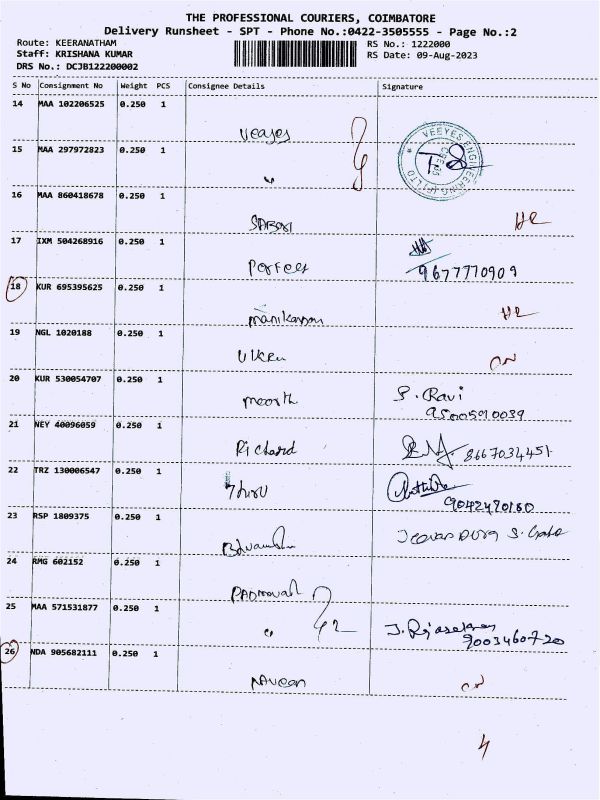 THE PROFESSIONAL COURIERS, COIMBATORE
Delivery Runsheet - SPT - Phone No.:0422-3505555 - Page No.:2
Route: KEERANATHAM RS No.: 1222000
Staff: KRISHANA KUMAR RS Date: 09-Aug-2023
DRS No.: DCJB122200002
S No Consignment No Weight PCS Consignee Details Signature
14 MAA 102206525 0.250 1
Veeyes
15 MAA 297972823 0.250 1
VEEYES ENGINEERING (P) LTD
16 MAA 860418678 0.250 1
17 IXM 504268916 0.250 1
Perfect 9677770909
18 KUR 695395625 0.250 1
manikannan
19 NGL 1020188 0.250 1
20 KUR 530054707 0.250 1
moorth S. Ravi
95005910039
21 NEY 40096059 0.250 1
Richard 8667034451
22 TRZ 130006547 0.250 1
Thiru
9042470160
23 RSP 1809375 0.250 1
24 RMG 602152 0.250 1
25 MAA 571531877 0.250 1
J. Rajasekaran
9003460720
26 NDA 905682111 0.250 1
Naveen
4